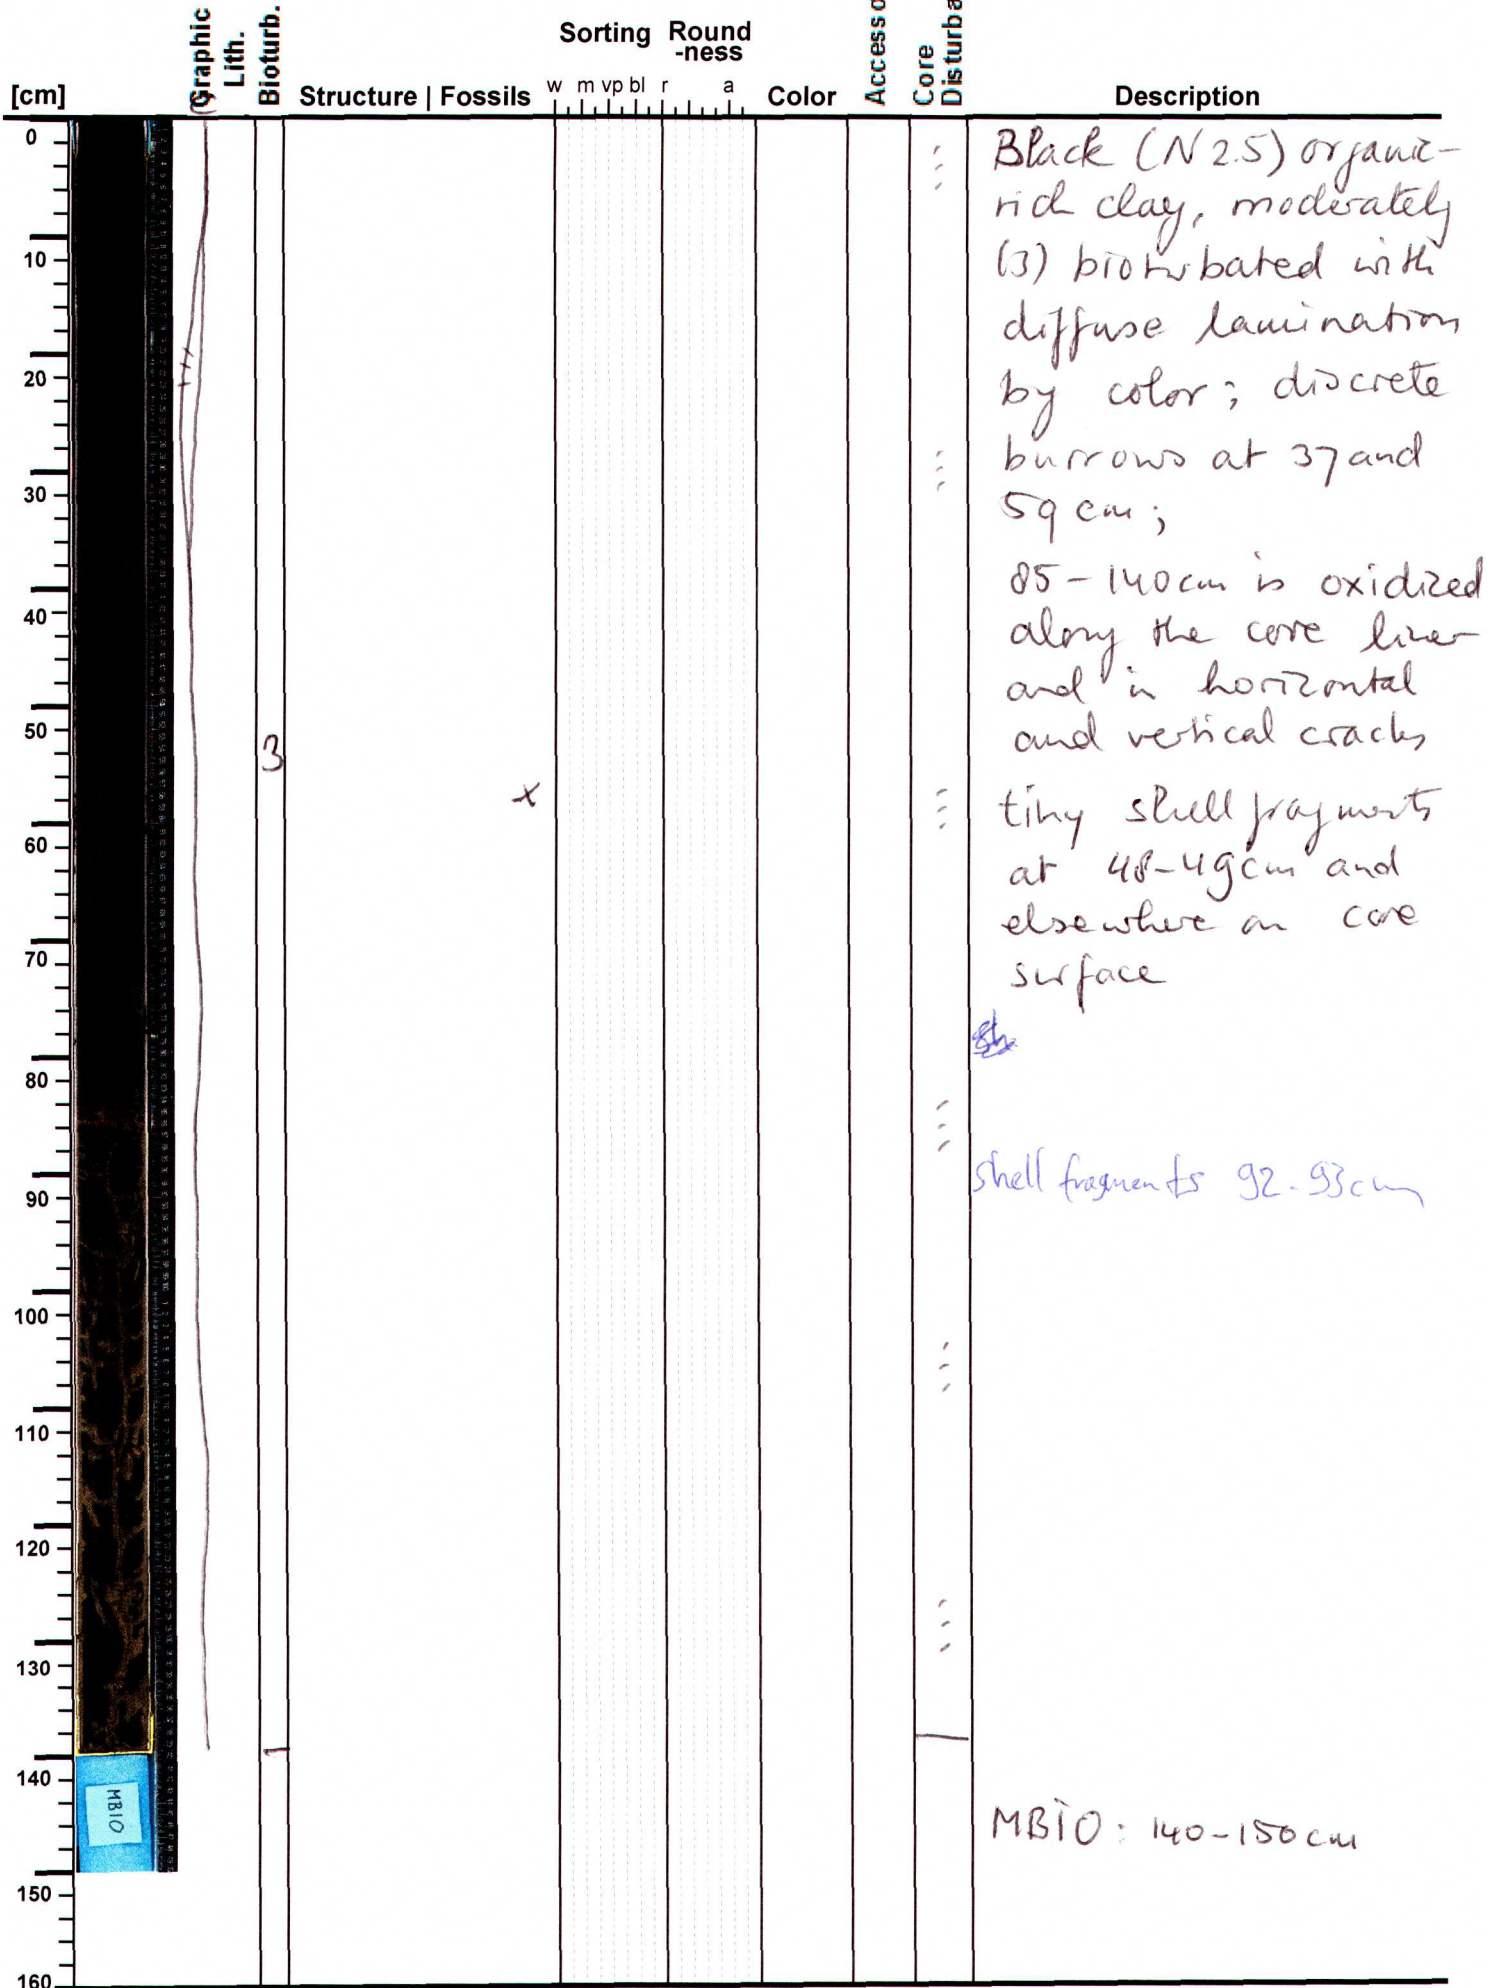 Graphic
Lith.
Bioturb.
Sorting Round
-ness
Accesso
Core
Disturba
[cm]
Structure | Fossils
w m vp bl r a
Color
Description
0
10
20
30
40
50
60
70
80
90
100
110
120
130
140
150
160
3
x
Black (N 2.5) organic-
rich clay, moderately
(3) bioturbated with
diffuse lamination
by color; discrete
burrows at 37 and
59 cm;
85-140cm is oxidized
along the core liner
and in horizontal
and vertical cracks
tiny shell fragments
at 48-49cm and
elsewhere on core
surface
shell fragments 92-93cm
MBIO
MBIO: 140-150cm